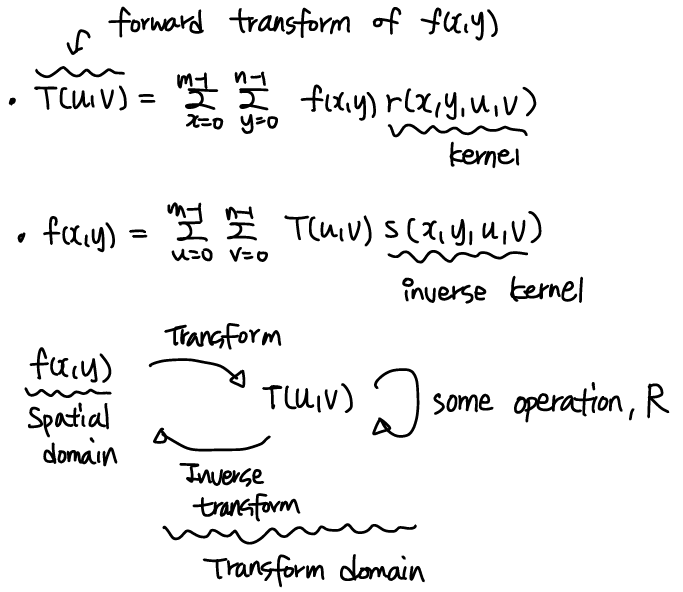 forward transform of f(x,y)
• T(u,v) = m-1 Σ x=0 n-1 Σ y=0 f(x,y) r(x,y,u,v)
kernel
• f(x,y) = m-1 Σ u=0 n-1 Σ v=0 T(u,v) s(x,y,u,v)
inverse kernel
Transform
f(x,y)
T(u,v) some operation, R
Spatial
domain
Inverse
transform
Transform domain